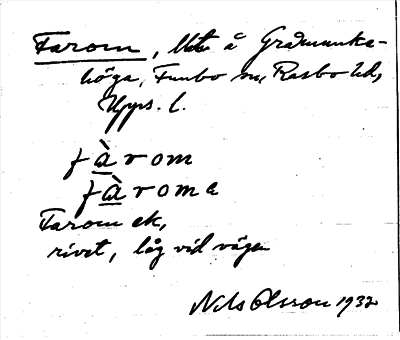 Farom, lht å Gråmunka-
höga, Funbo sn, Rasbo hd,
Upps. l.
fàrom
fàroma
Farom ek,
rivet, låg vid vägen
Nils Olsson 1932